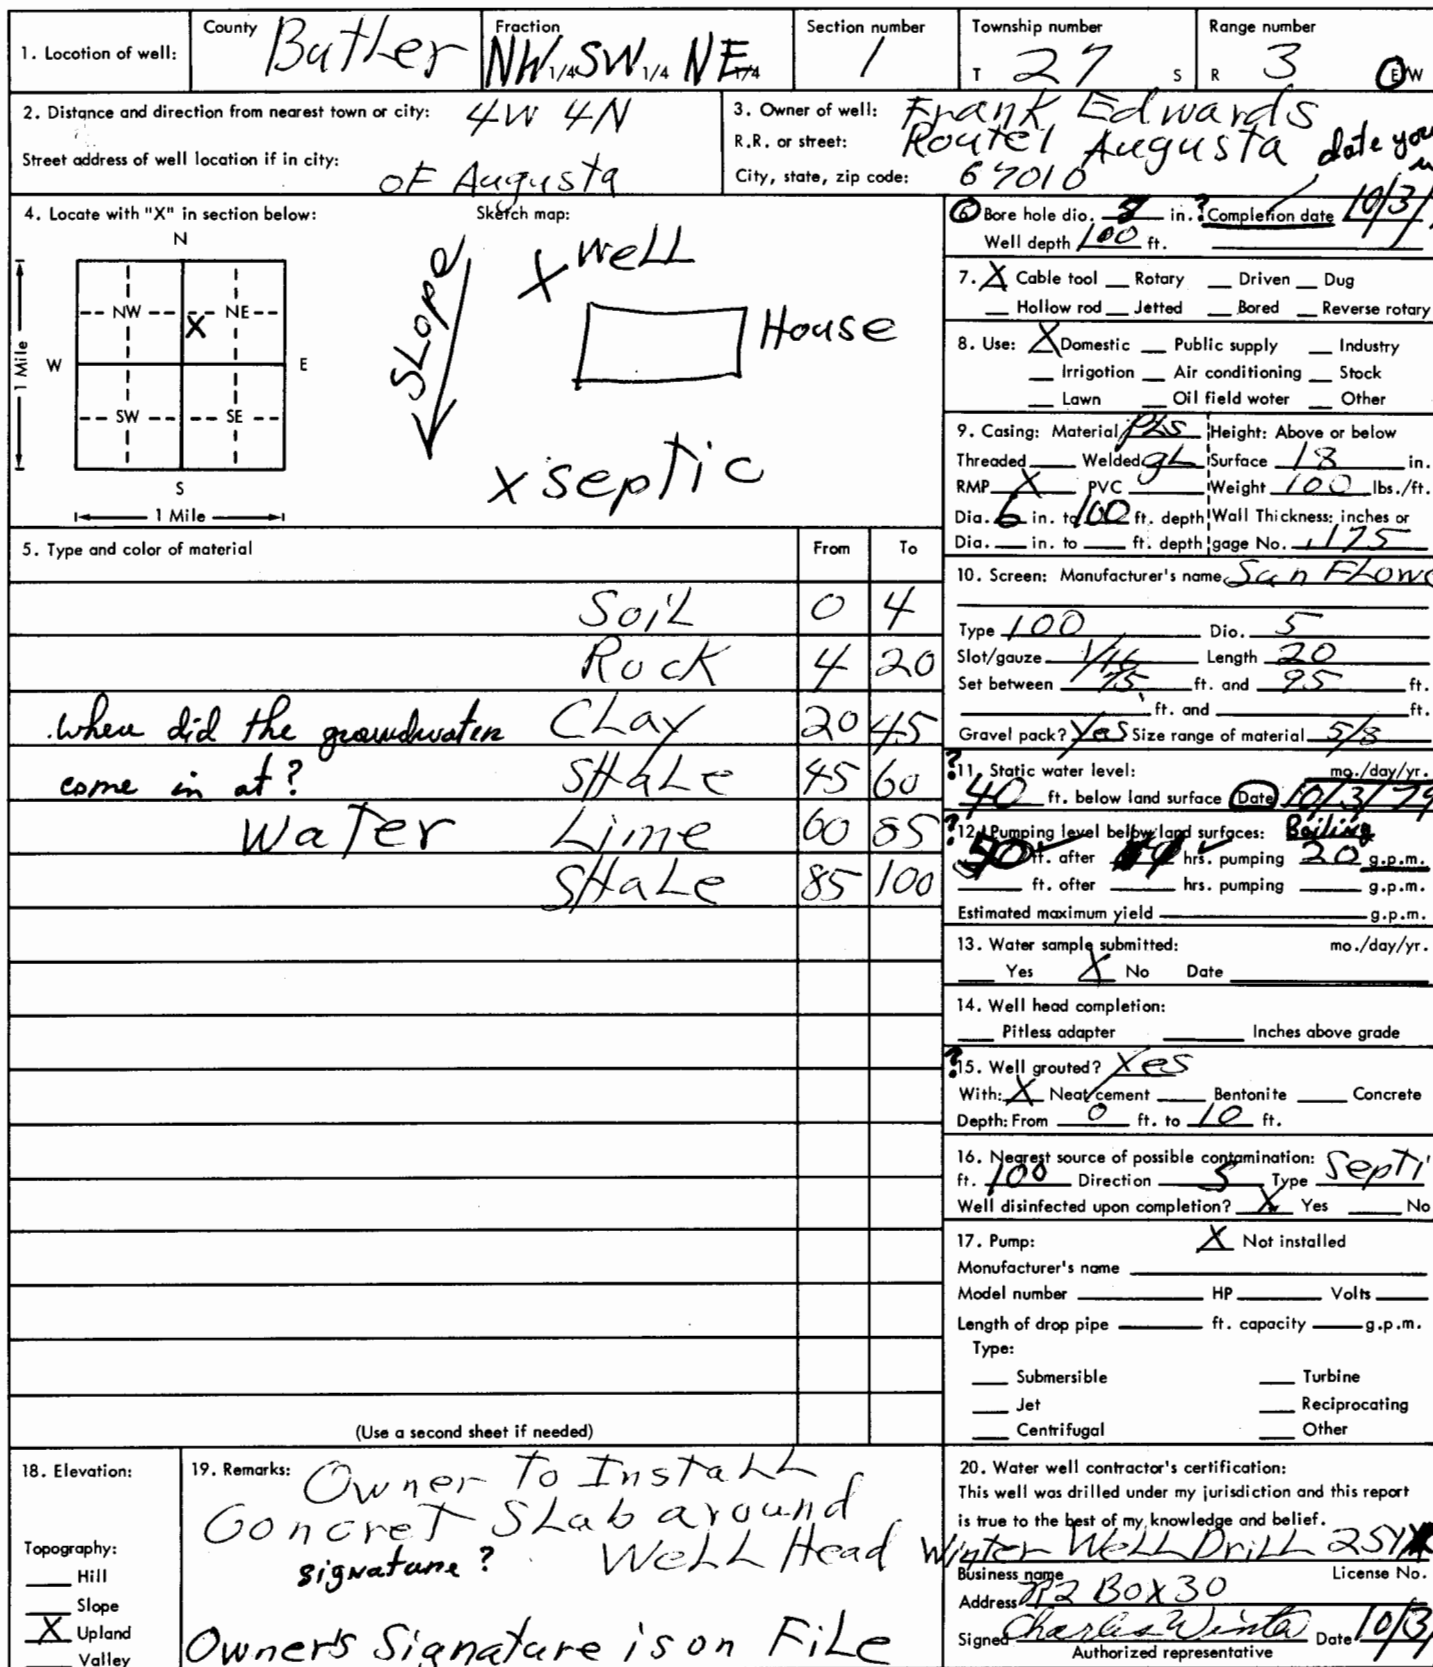 1. Location of well:
County Butler
Fraction NW 1/4 SW 1/4 NE 1/4
Section number 1
Township number T 27 S
Range number R 3 E/W
2. Distance and direction from nearest town or city: 4W 4N
Street address of well location if in city: OF Augusta
3. Owner of well: Frank Edwards
R.R. or street: Route 1 Augusta
City, state, zip code: 67010
date you
4. Locate with "X" in section below:
N
NW X NE
W E
SW SE
S
1 Mile
1 Mile
Sketch map:
X WeLL
House
SLope
X septic
6 Bore hole dia. in. ? Completion date 10/3/
Well depth 100 ft.
7. X Cable tool __ Rotary __ Driven __ Dug
__ Hollow rod __ Jetted __ Bored __ Reverse rotary
8. Use: X Domestic __ Public supply __ Industry
__ Irrigation __ Air conditioning __ Stock
__ Lawn __ Oil field water __ Other
9. Casing: Material PLS Height: Above or below
Threaded __ Welded gL Surface 18 in.
RMP X PVC __ Weight 100 lbs./ft.
Dia. 6 in. to 100 ft. depth Wall Thickness: inches or
Dia. __ in. to __ ft. depth gage No. .175
5. Type and color of material From To
SoiL 0 4
Rock 4 20
where did the groundwater CLay 20 45
come in at? SHaLe 45 60
WaTer Lime 60 85
SHaLe 85 100
(Use a second sheet if needed)
10. Screen: Manufacturer's name Sun FLowe
Type 100 Dia. 5
Slot/gauze 1/16 Length 20
Set between 75 ft. and 95 ft.
__ ft. and __ ft.
Gravel pack? Yes Size range of material 5/8
? 11. Static water level: mo./day/yr.
40 ft. below land surface Date 10/3/79
? 12. Pumping level below land surfaces: Bailing
50 ft. after hrs. pumping 20 g.p.m.
__ ft. after __ hrs. pumping __ g.p.m.
Estimated maximum yield __ g.p.m.
13. Water sample submitted: mo./day/yr.
__ Yes X No Date __
14. Well head completion:
__ Pitless adapter __ Inches above grade
? 15. Well grouted? Yes
With: X Neat cement __ Bentonite __ Concrete
Depth: From 0 ft. to 10 ft.
16. Nearest source of possible contamination:
ft. 100 Direction S Type Septi
Well disinfected upon completion? X Yes __ No
17. Pump: X Not installed
Manufacturer's name __
Model number __ HP __ Volts __
Length of drop pipe __ ft. capacity __ g.p.m.
Type:
__ Submersible __ Turbine
__ Jet __ Reciprocating
__ Centrifugal __ Other
18. Elevation:
Topography:
__ Hill
__ Slope
X Upland
__ Valley
19. Remarks: Owner To InstaLL
ConcreT SLab around
signature? WeLL Head
Owner's Signature is on FiLe
20. Water well contractor's certification:
This well was drilled under my jurisdiction and this report
is true to the best of my knowledge and belief.
Winter WeLL DriLL
Business name License No.
Address R2 Box 30
Signed Charles Winter Date 10/3/
Authorized representative